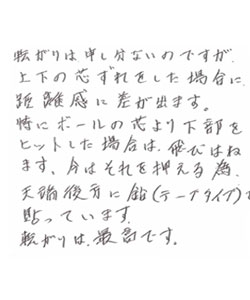 転がりは申し分ないのですが、
上下の芯ずれをした場合に
距離感に差が出ます。
特にボールの芯より下部を
ヒットした場合は、飛びはね
ます、今はそれを抑える為、
天端後方に鉛(テープタイプ)を
貼っています。
転がりは、最高です。